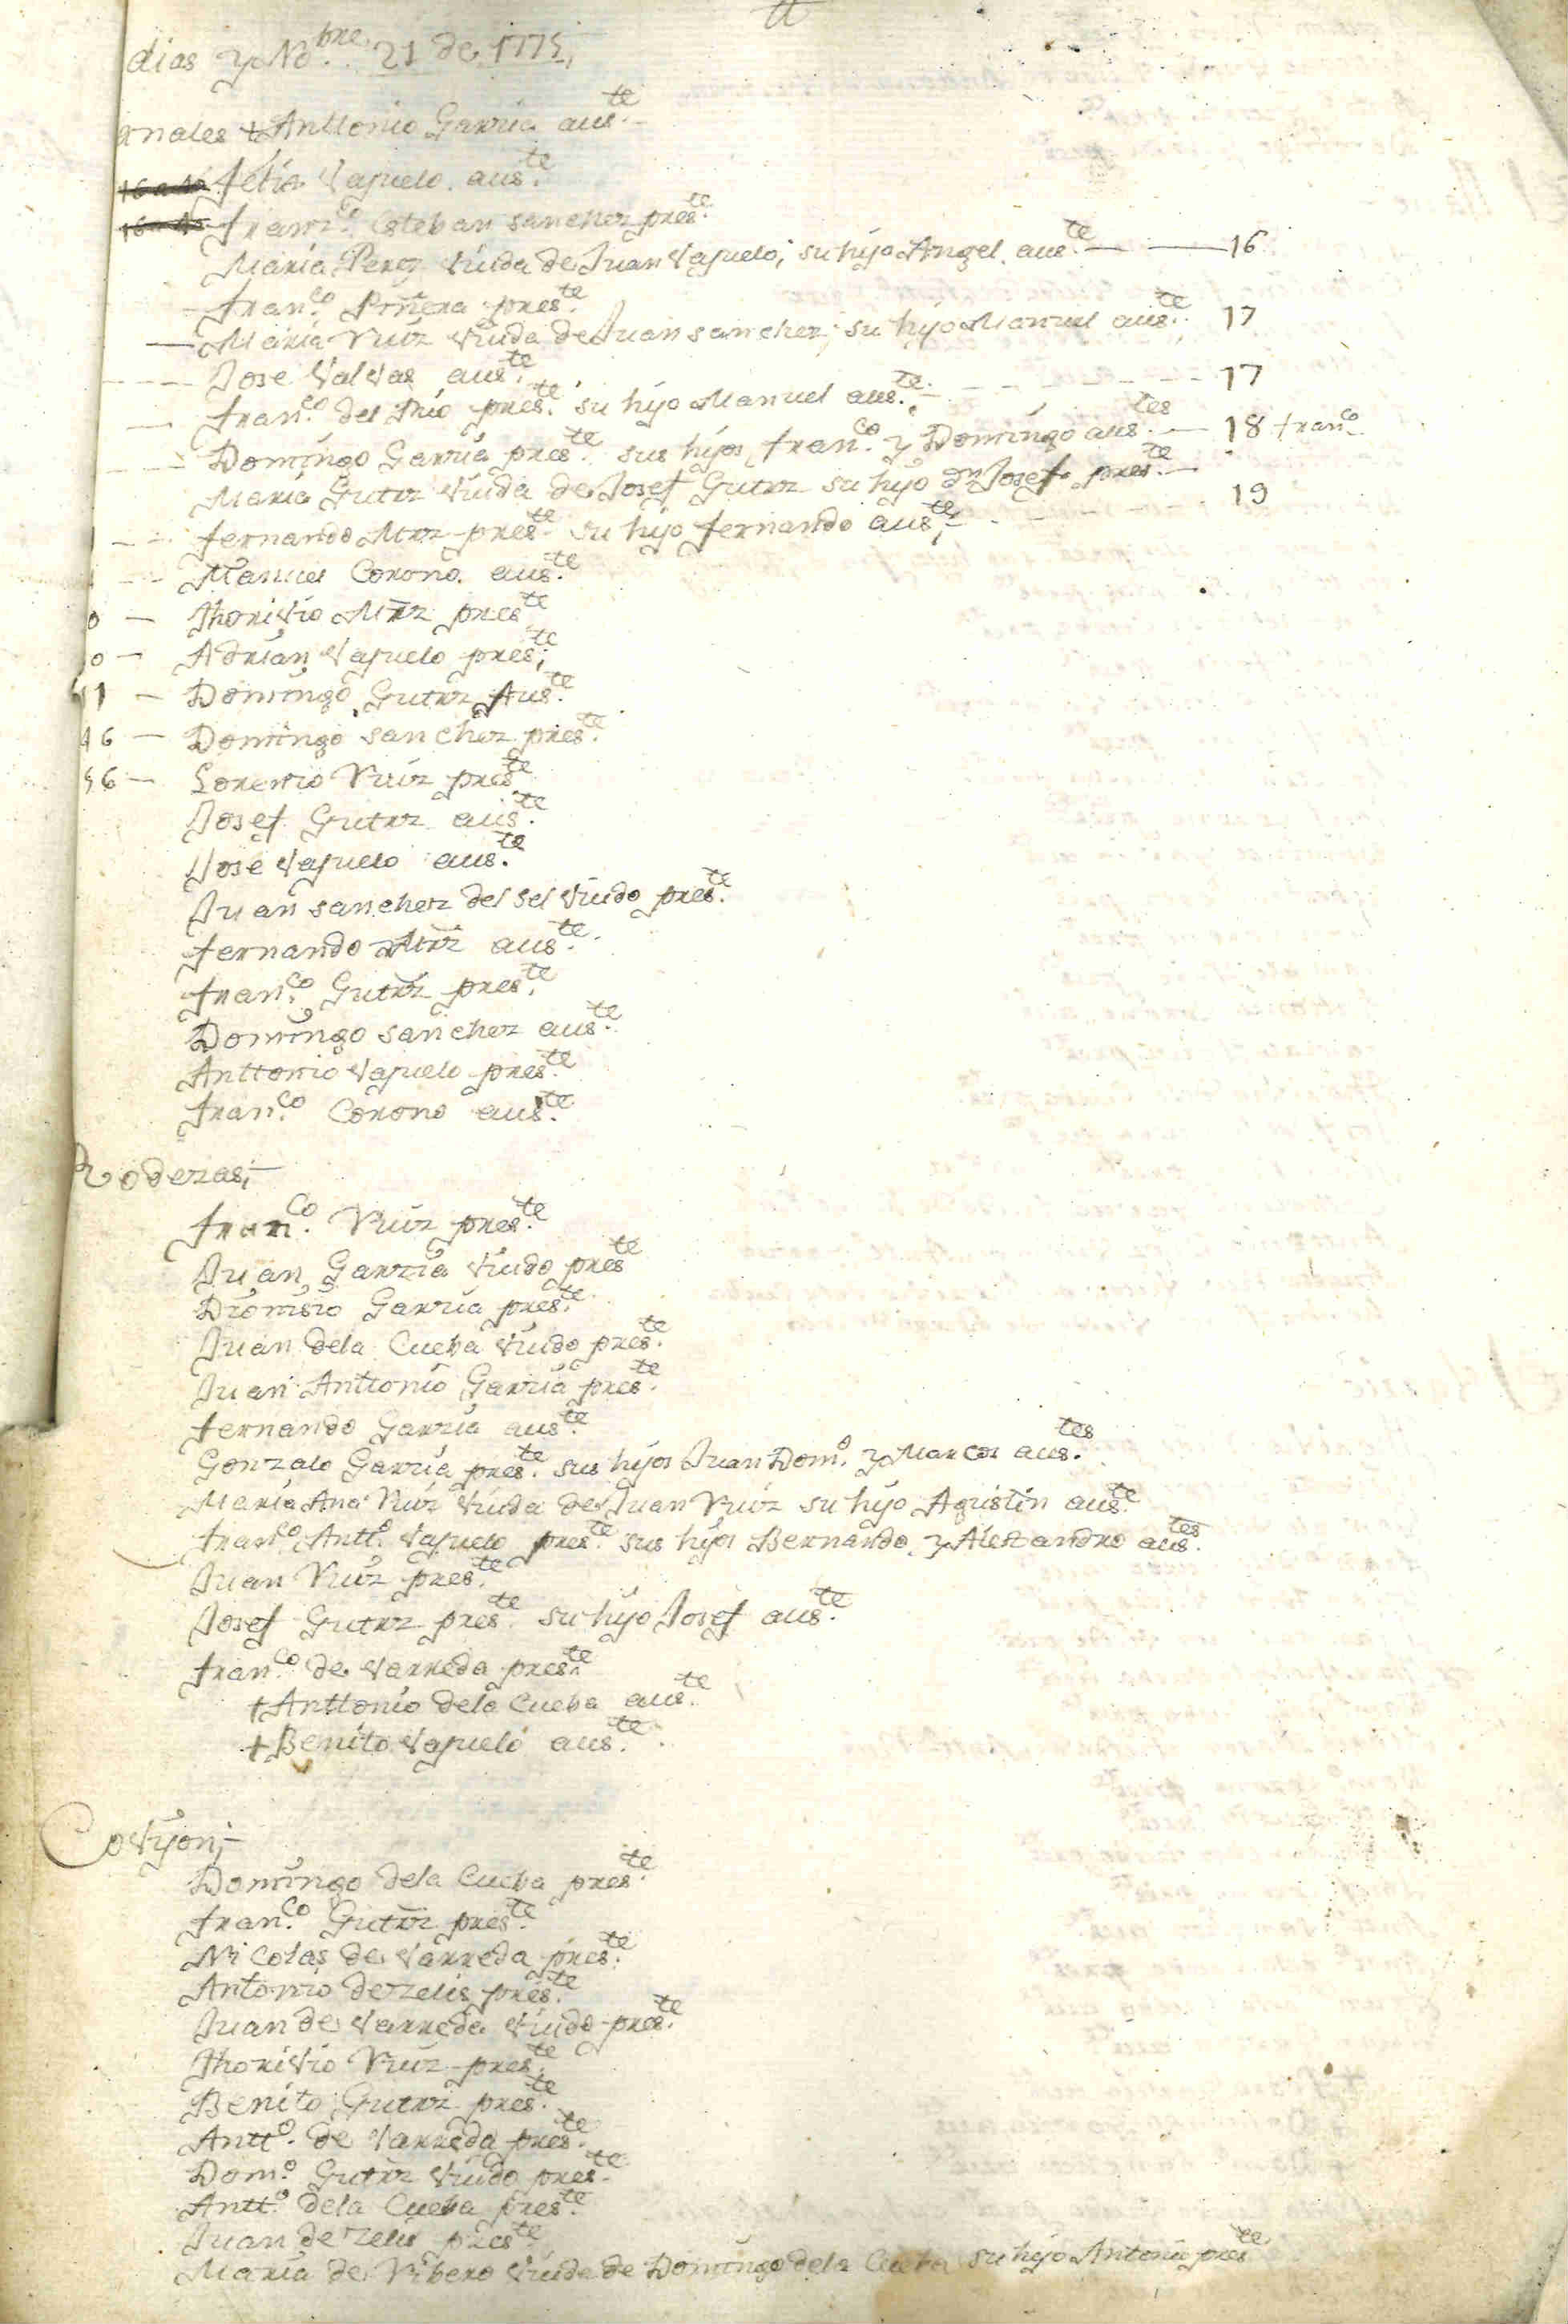 tt
dias y No.bre 21 de 1775,
Anttonio Garzia aus.te
Vajuelo. aus.te
Franz.co Esteban sanchez pres.te
Maria Perez Viuda de Juan Vajuelo; su hijo Angel. aus.te — — 16
Fran.co pres.te
— Maria Ruiz Viuda de Juan sanchez; su hijo Manuel aus.te 17
- - - - Jose Valvas aus.te
— Fran.co del Rio pres.te su hijo Manuel aus.te - - - - - - 17
- - - Domingo Garzia pres.te sus hijos Fran.co y Domingo aus.tes — 18 Fran.co
Maria Gutrz Viuda de Josef Gutrz su hijo Dn Josef pres.te —
- - - Fernando Mrz pres.te su hijo Fernando aus.te - - - - - 19
- - Manuel Corono. aus.te
0 — Thorivio Mrz pres.te
0 — Adrian Vajuelo pres.te;
11 — Domingo Gutrz Aus.te
46 — Domingo sanchez pres.te
56 — Lorenzo Ruiz pres.te
Josef Gutrz aus.te
Jose Vajuelo aus.te
Juan sanchez del sel Viudo pres.te
Fernando Mrz aus.te
Fran.co Gutrz pres.te
Domingo sanchez aus.te
Anttonio Vajuelo pres.te
Fran.co Corono aus.te
Roderas;—
Fran.co Ruiz pres.te
Juan Garzia Viudo pres.te
Dionisio Garzia pres.te
Juan dela Cueba Viudo pres.te
Juan Anttonio Garzia pres.te
Fernando Garzia aus.te
Gonzalo Garzia pres.te sus hijos Juan Dom.o y Marcos aus.tes
Maria Ana Ruiz Viuda de Juan Ruiz su hijo Agustin aus.te
Fran.co Antt.o Vajuelo pres.te sus hijos Bernardo, y Alexandro aus.tes
Juan Ruiz pres.te
Josef Gutrz pres.te su hijo Josef aus.te
Fran.co de Varreda pres.te
+ Anttonio dela Cueba aus.te
+ Benito Vajuelo aus.te
CoVijon;—
Domingo dela Cueba pres.te
Fran.co Gutrz pres.te
Nicolas de Varreda pres.te
Antonio de zelis pres.te
Juan de Varreda Viudo pres.te
Thorivio Ruiz pres.te
Benito Gutrz pres.te
Antt.o de Varreda pres.te
Dom.o Gutrz Viudo pres.te
Antt.o dela Cueba pres.te
Juan de zelis pres.te
Maria de Ribero Viuda de Domingo dela Cueba su hijo Antonio pres.te